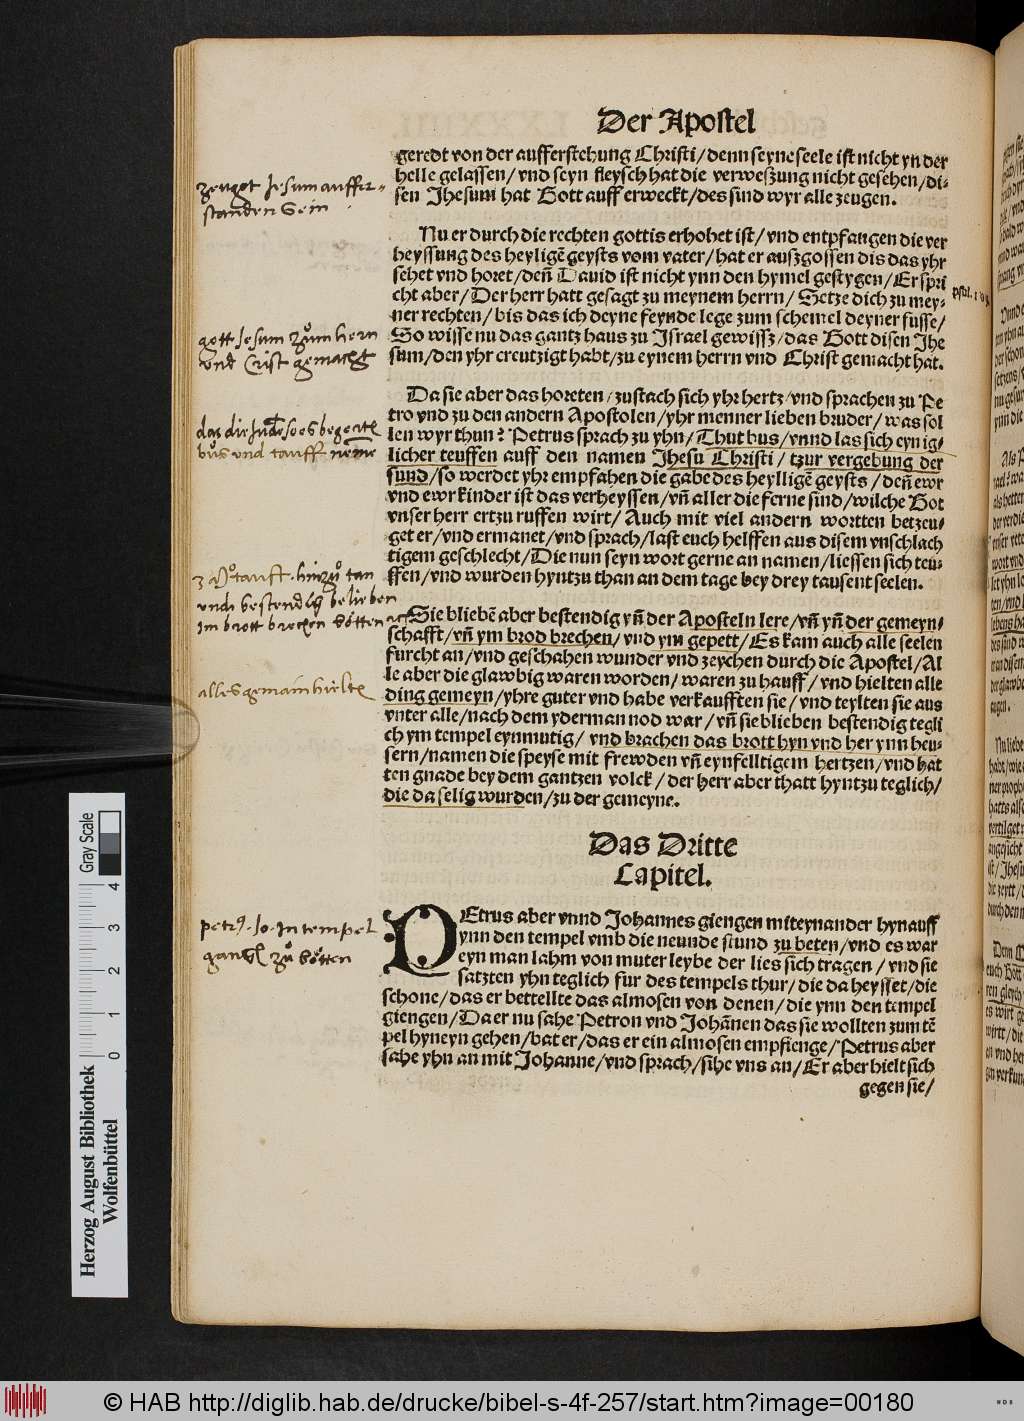 Der Apostel
geredt von der aufferstehung Christi/denn seyne seele ist nicht yn der
helle gelassen/vnd seyn fleysch hat die verweßung nicht gesehen/di-
sen Jhesum hat Gott aufferweckt/des sind wyr alle zeugen.
zeuget Jesum auffer-
standen sein
Nu er durch die rechten gottis erhohet ist/vnd entpfangen die ver
heyssung des heyligē geysts vom vater/hat er auszgossen dis das yhr
sehet vnd horet/deñ Dauid ist nicht ynn den hymel gestygen/Er spri
cht aber/Der herr hatt gesagt zu meynem herrn/Setze dich zu mey-
ner rechten/bis das ich deyne feynde lege zum schemel deyner fusse/
So wisse nu das gantz haus zu Israel gewissz/das Gott disen Jhe
sum/den yhr creutzigt habt/zu eynem herrn vnd Christ gemacht hat.
psal.
gott Jesum zům hern
vnd Crist gemacht
Da sie aber das horeten/zustach sich yhr hertz/vnd sprachen zu Pe
tro vnd zu den andern Apostolen/yhr menner lieben bruder/was sol
len wyr thun? Petrus sprach zu yhn/Thut bus/vnnd las sich eyn ig-
licher teuffen auff den namen Jhesu Christi/tzur vergebung der
sund/so werdet yhr empfahen die gabe des heylligē geysts/deñ ewr
vnd ewr kinder ist das verheyssen/vñ aller die ferne sind/wilche Got
vnser herr ertzu ruffen wirt/Auch mit viel andern wortten betzeu-
get er/vnd ermanet/vnd sprach/last euch helffen aus disem vnschlach
tigem geschlecht/Die nun seyn wort gerne an namen/liessen sich teu-
ffen/vnd wurden hyntzu than an dem tage bey drey tausent seelen.
bůs und tauff neme
tauft. hinzů tan
vnd bestendig belieben
Im brott brechen bötten
Sie bliebē aber bestendig yñ der Aposteln lere/vñ yñ der gemeyn-
schafft/vñ ym brod brechen/vnd ym gepett/Es kam auch alle seelen
furcht an/vnd geschahen wunder vnd zeychen durch die Apostel/Al
le aber die glawbig waren worden/waren zu hauff/vnd hielten alle
ding gemeyn/yhre guter vnd habe verkaufften sie/vnd teylten sie aus
vnter alle/nach dem yderman nod war/vñ sie blieben bestendig tegli
ch ym tempel eynmutig/vnd brachen das brott hyn vnd her ynn heu-
sern/namen die speyse mit frewden vñ eynfelltigem hertzen/vnd hat
ten gnade bey dem gantzen volck/der herr aber thatt hyntzu teglich/
die da selig wurden/zu der gemeyne.
alles gemain hielten
Das Dritte
Capitel.
PEtrus aber vnnd Johannes giengen miteynander hynauff
ynn den tempel vmb die neunde stund zu beten/vnd es war
eyn man lahm von muter leybe der lies sich tragen/vnd sie
satzten yhn teglich fur des tempels thur/die da heysset/die
schone/das er bettellte das almosen von denen/die ynn den tempel
giengen/Da er nu sahe Petron vnd Johãnen das sie wollten zum tē
pel hyneyn gehen/bat er/das er ein almosen empfienge/Petrus aber
sahe yhn an mit Johanne/vnd sprach/sihe vns an/Er aber hielt sich
gegen sie/
In tempel
zů bötten
Gray Scale
0 1 2 3 4
Herzog August Bibliothek
Wolfenbüttel
© HAB http://diglib.hab.de/drucke/bibel-s-4f-257/start.htm?image=00180